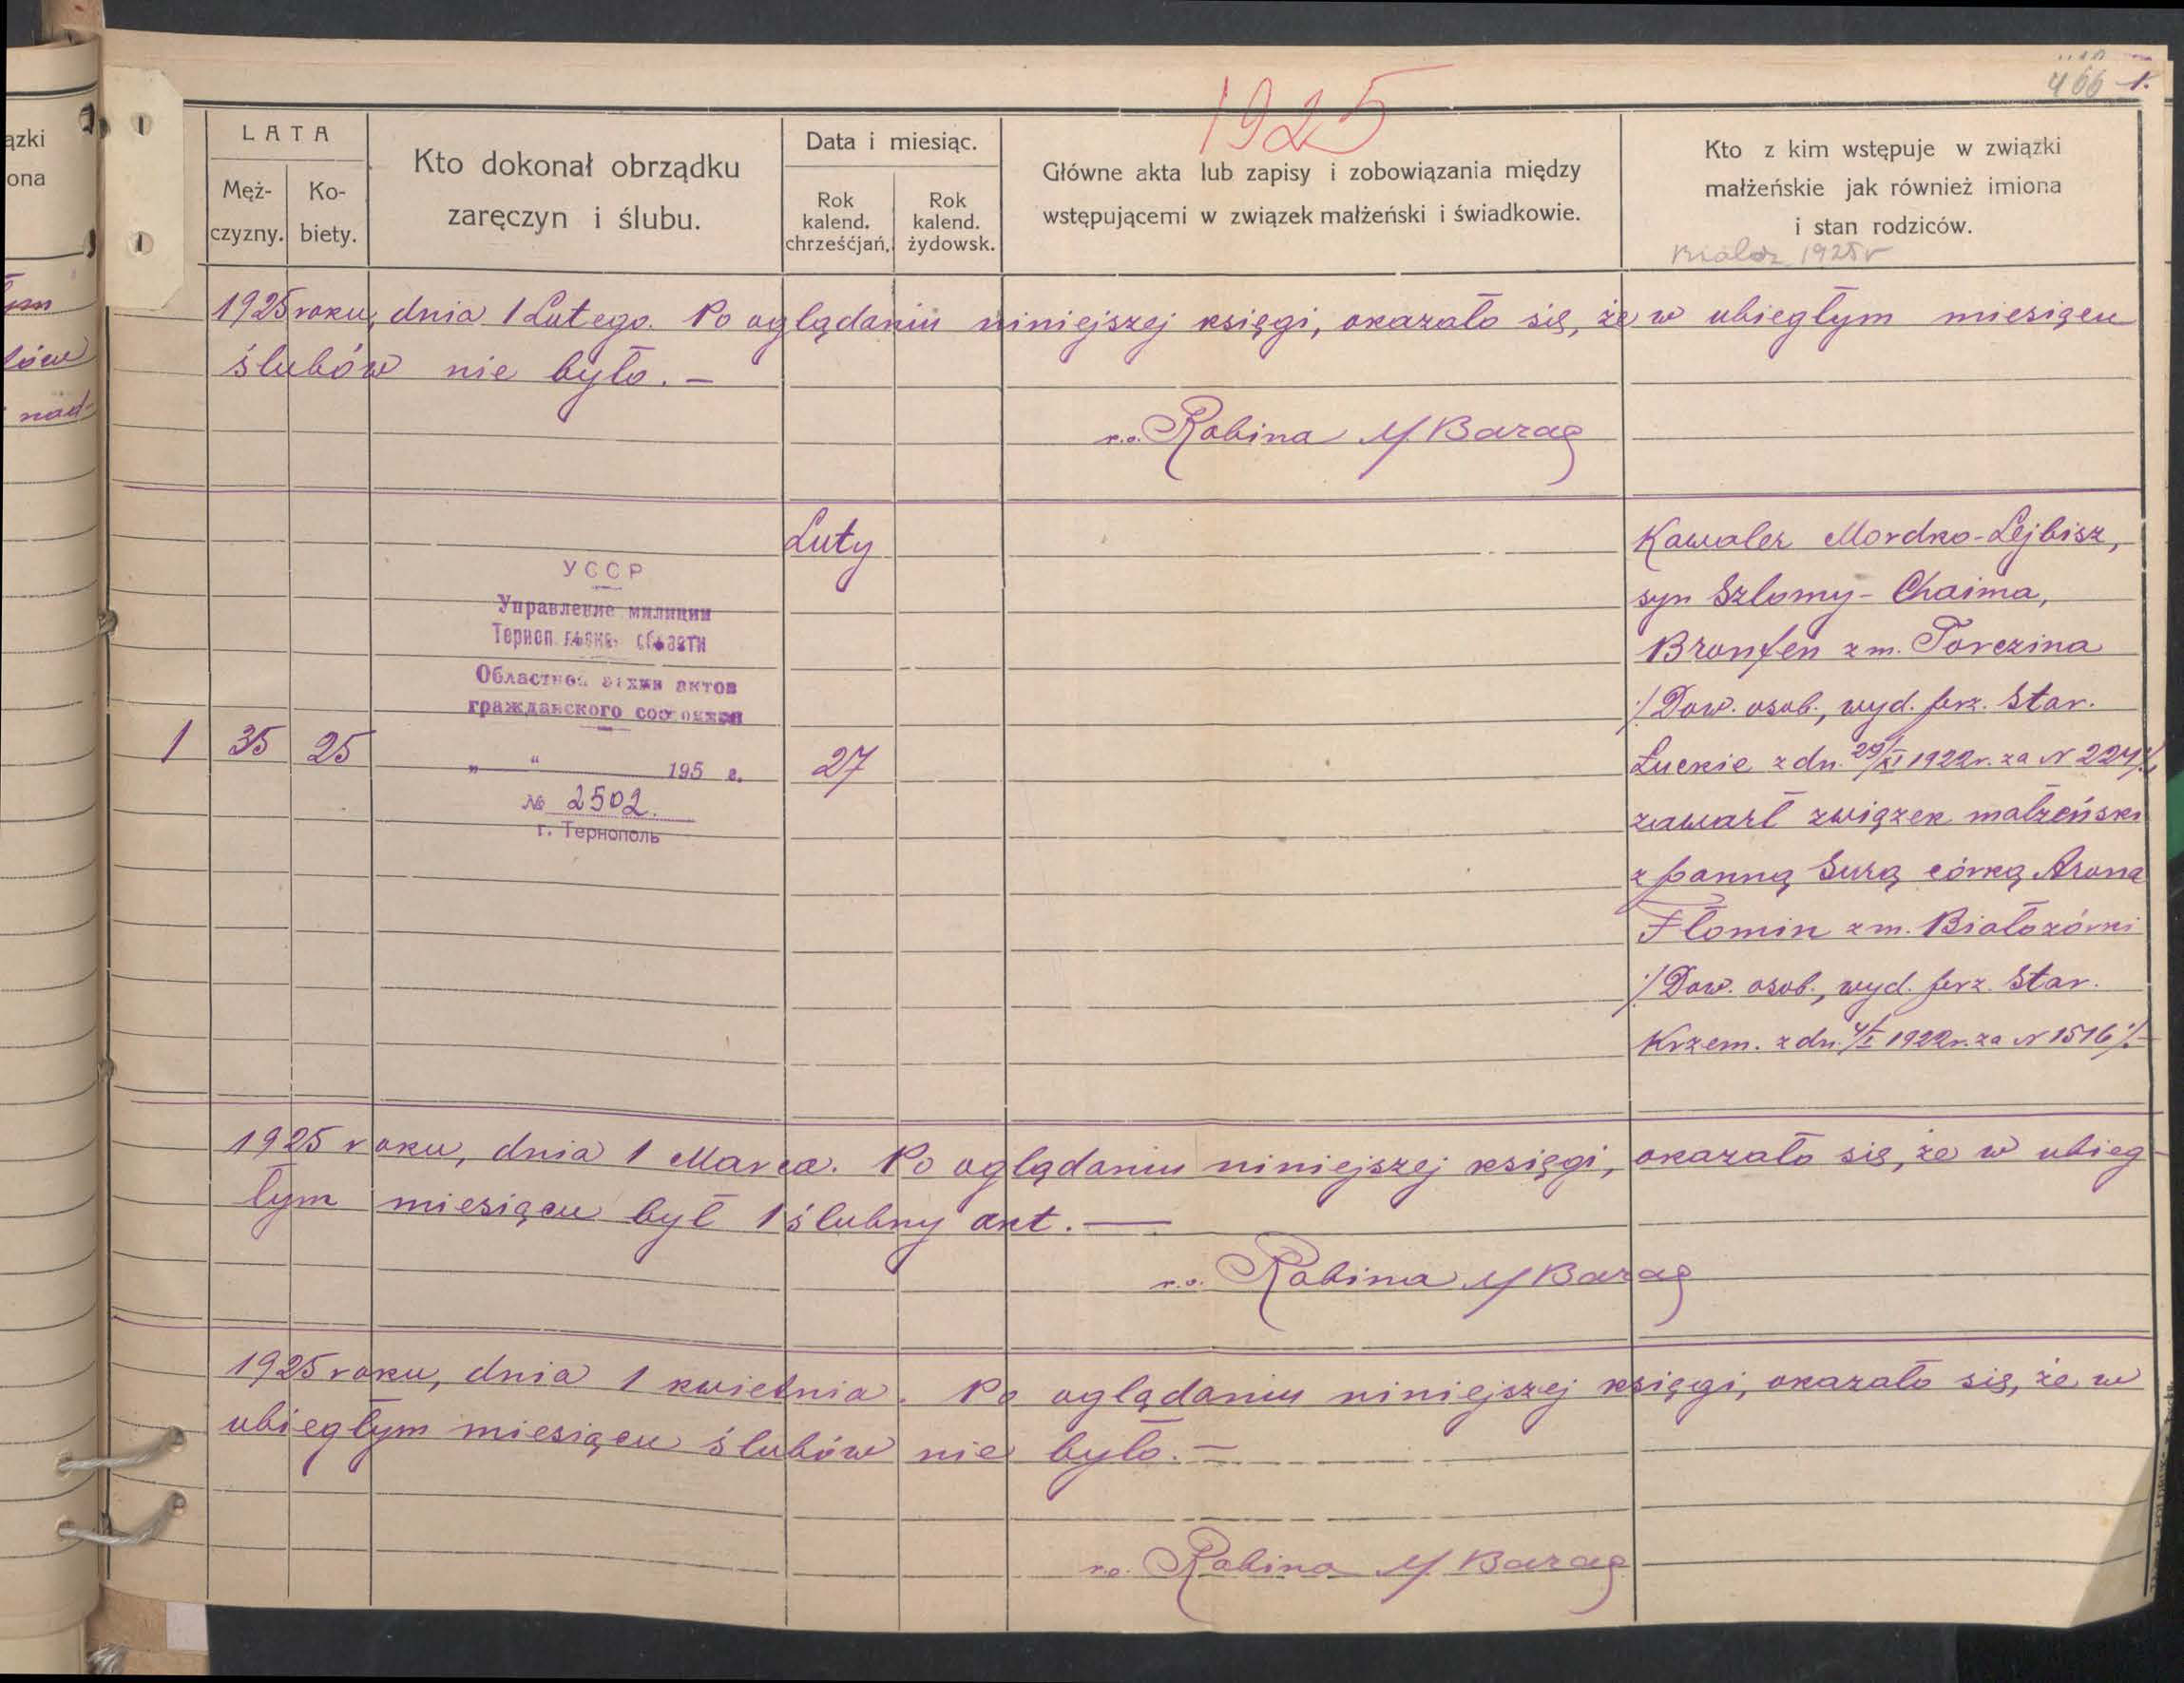 1925
466 1.
LATA
Męż-
czyzny.
Ko-
biety.
Kto dokonał obrządku
zaręczyn i ślubu.
Data i miesiąc.
Rok
kalend.
chrześćjań.
Rok
kalend.
żydowsk.
Główne akta lub zapisy i zobowiązania między
wstępującemi w związek małżeński i świadkowie.
Kto z kim wstępuje w związki
małżeńskie jak również imiona
i stan rodziców.
1925 r
1925 roku, dnia 1 Lutego. Po oglądaniu niniejszej księgi, okazało się, że w ubiegłym miesiącu
ślubów nie było. —
Rabina M Barag
Luty
УССР
Управление милиции
Областной архив актов
гражданского состояния
" " 195 г.
№ 2502.
г. Тернополь
1 35 25
27
Kawaler Mordko-Lejbisz,
syn Szlomy-Chaima,
Bronfen z m. Torczina
:/Dow. osob., wyd. prz. Star.
Łuckie z dn. 29/XI 1922 r. za N 224/:,
zawarł związek małżeński
z panną Surą córką Arona
Fłomin z m. Białozórki
:/Dow. osob., wyd. prz. Star.
Krzem. z dn. 4/I 1922 r. za N 1516/:.
1925 roku, dnia 1 Marca. Po oglądaniu niniejszej księgi, okazało się, że w ubieg-
łym miesiącu był 1 ślubny akt. —
Rabina M Barag
1925 roku, dnia 1 kwietnia. Po oglądaniu niniejszej księgi, okazało się, że w
ubiegłym miesiącu ślubów nie było. —
Rabina M. Barag
ązki
ona
łym
bów
nad-